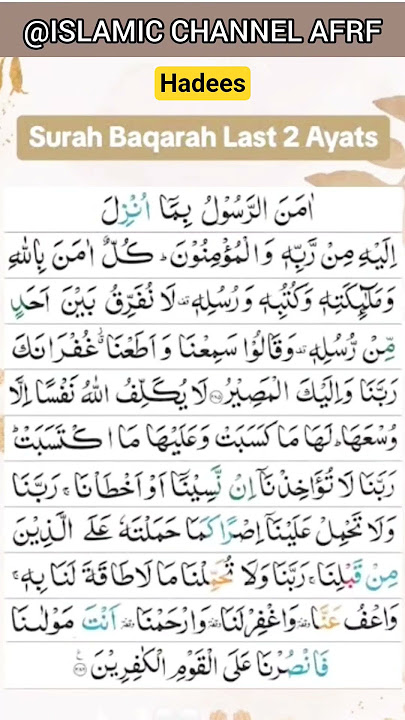 @ISLAMIC CHANNEL AFRF
Hadees
Surah Baqarah Last 2 Ayats
اٰمَنَ الرَّسُوْلُ بِمَاۤ اُنْزِلَ
اِلَيْهِ مِنْ رَّبِّهٖ وَالْمُؤْمِنُوْنَ ؕ كُلٌّ اٰمَنَ بِاللّٰهِ
وَمَلٰٓئِكَتِهٖ وَكُتُبِهٖ وَرُسُلِهٖ ۟ لَا نُفَرِّقُ بَيْنَ اَحَدٍ
مِّنْ رُّسُلِهٖ ۟ وَقَالُوْا سَمِعْنَا وَاَطَعْنَا ٭۫ غُفْرَانَكَ
رَبَّنَا وَاِلَيْكَ الْمَصِيْرُ ﴿۲۸۵﴾ لَا يُكَلِّفُ اللّٰهُ نَفْسًا اِلَّا
وُسْعَهَا ؕ لَهَا مَا كَسَبَتْ وَعَلَيْهَا مَا اكْتَسَبَتْ ؕ
رَبَّنَا لَا تُؤَاخِذْنَاۤ اِنْ نَّسِيْنَاۤ اَوْ اَخْطَاْنَا ۚ رَبَّنَا
وَلَا تَحْمِلْ عَلَيْنَاۤ اِصْرًا كَمَا حَمَلْتَهٗ عَلَى الَّذِيْنَ
مِنْ قَبْلِنَا ۚ رَبَّنَا وَلَا تُحَمِّلْنَا مَا لَا طَاقَةَ لَنَا بِهٖ ۚ
وَاعْفُ عَنَّا ۥ وَاغْفِرْ لَنَا ۥ وَارْحَمْنَا ۥ اَنْتَ مَوْلٰىنَا
فَانْصُرْنَا عَلَى الْقَوْمِ الْكٰفِرِيْنَ ﴿۲۸۶﴾